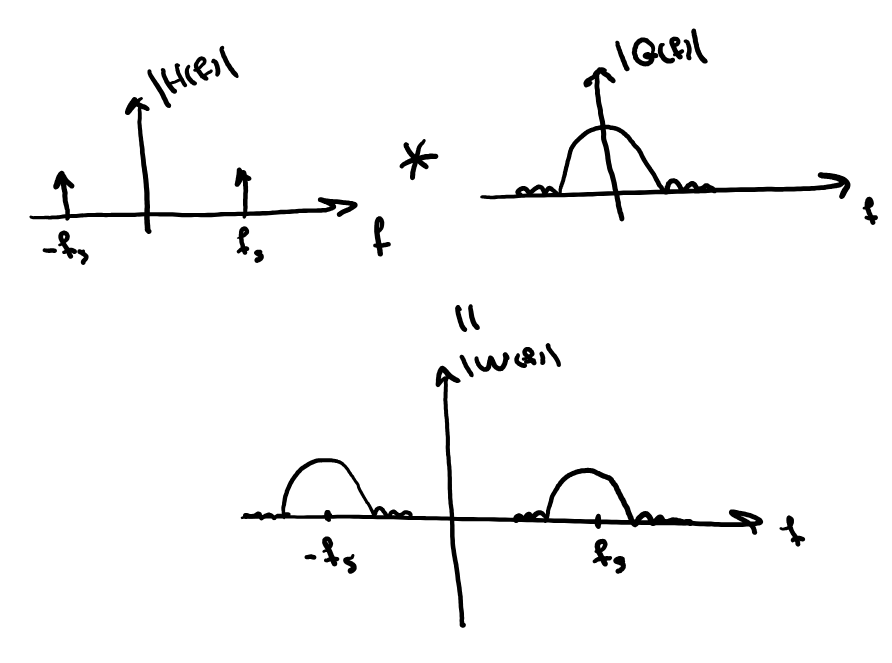 |H(f)|
-fs
fs
f
*
|Q(f)|
f
=
|W(f)|
-fs
fs
f